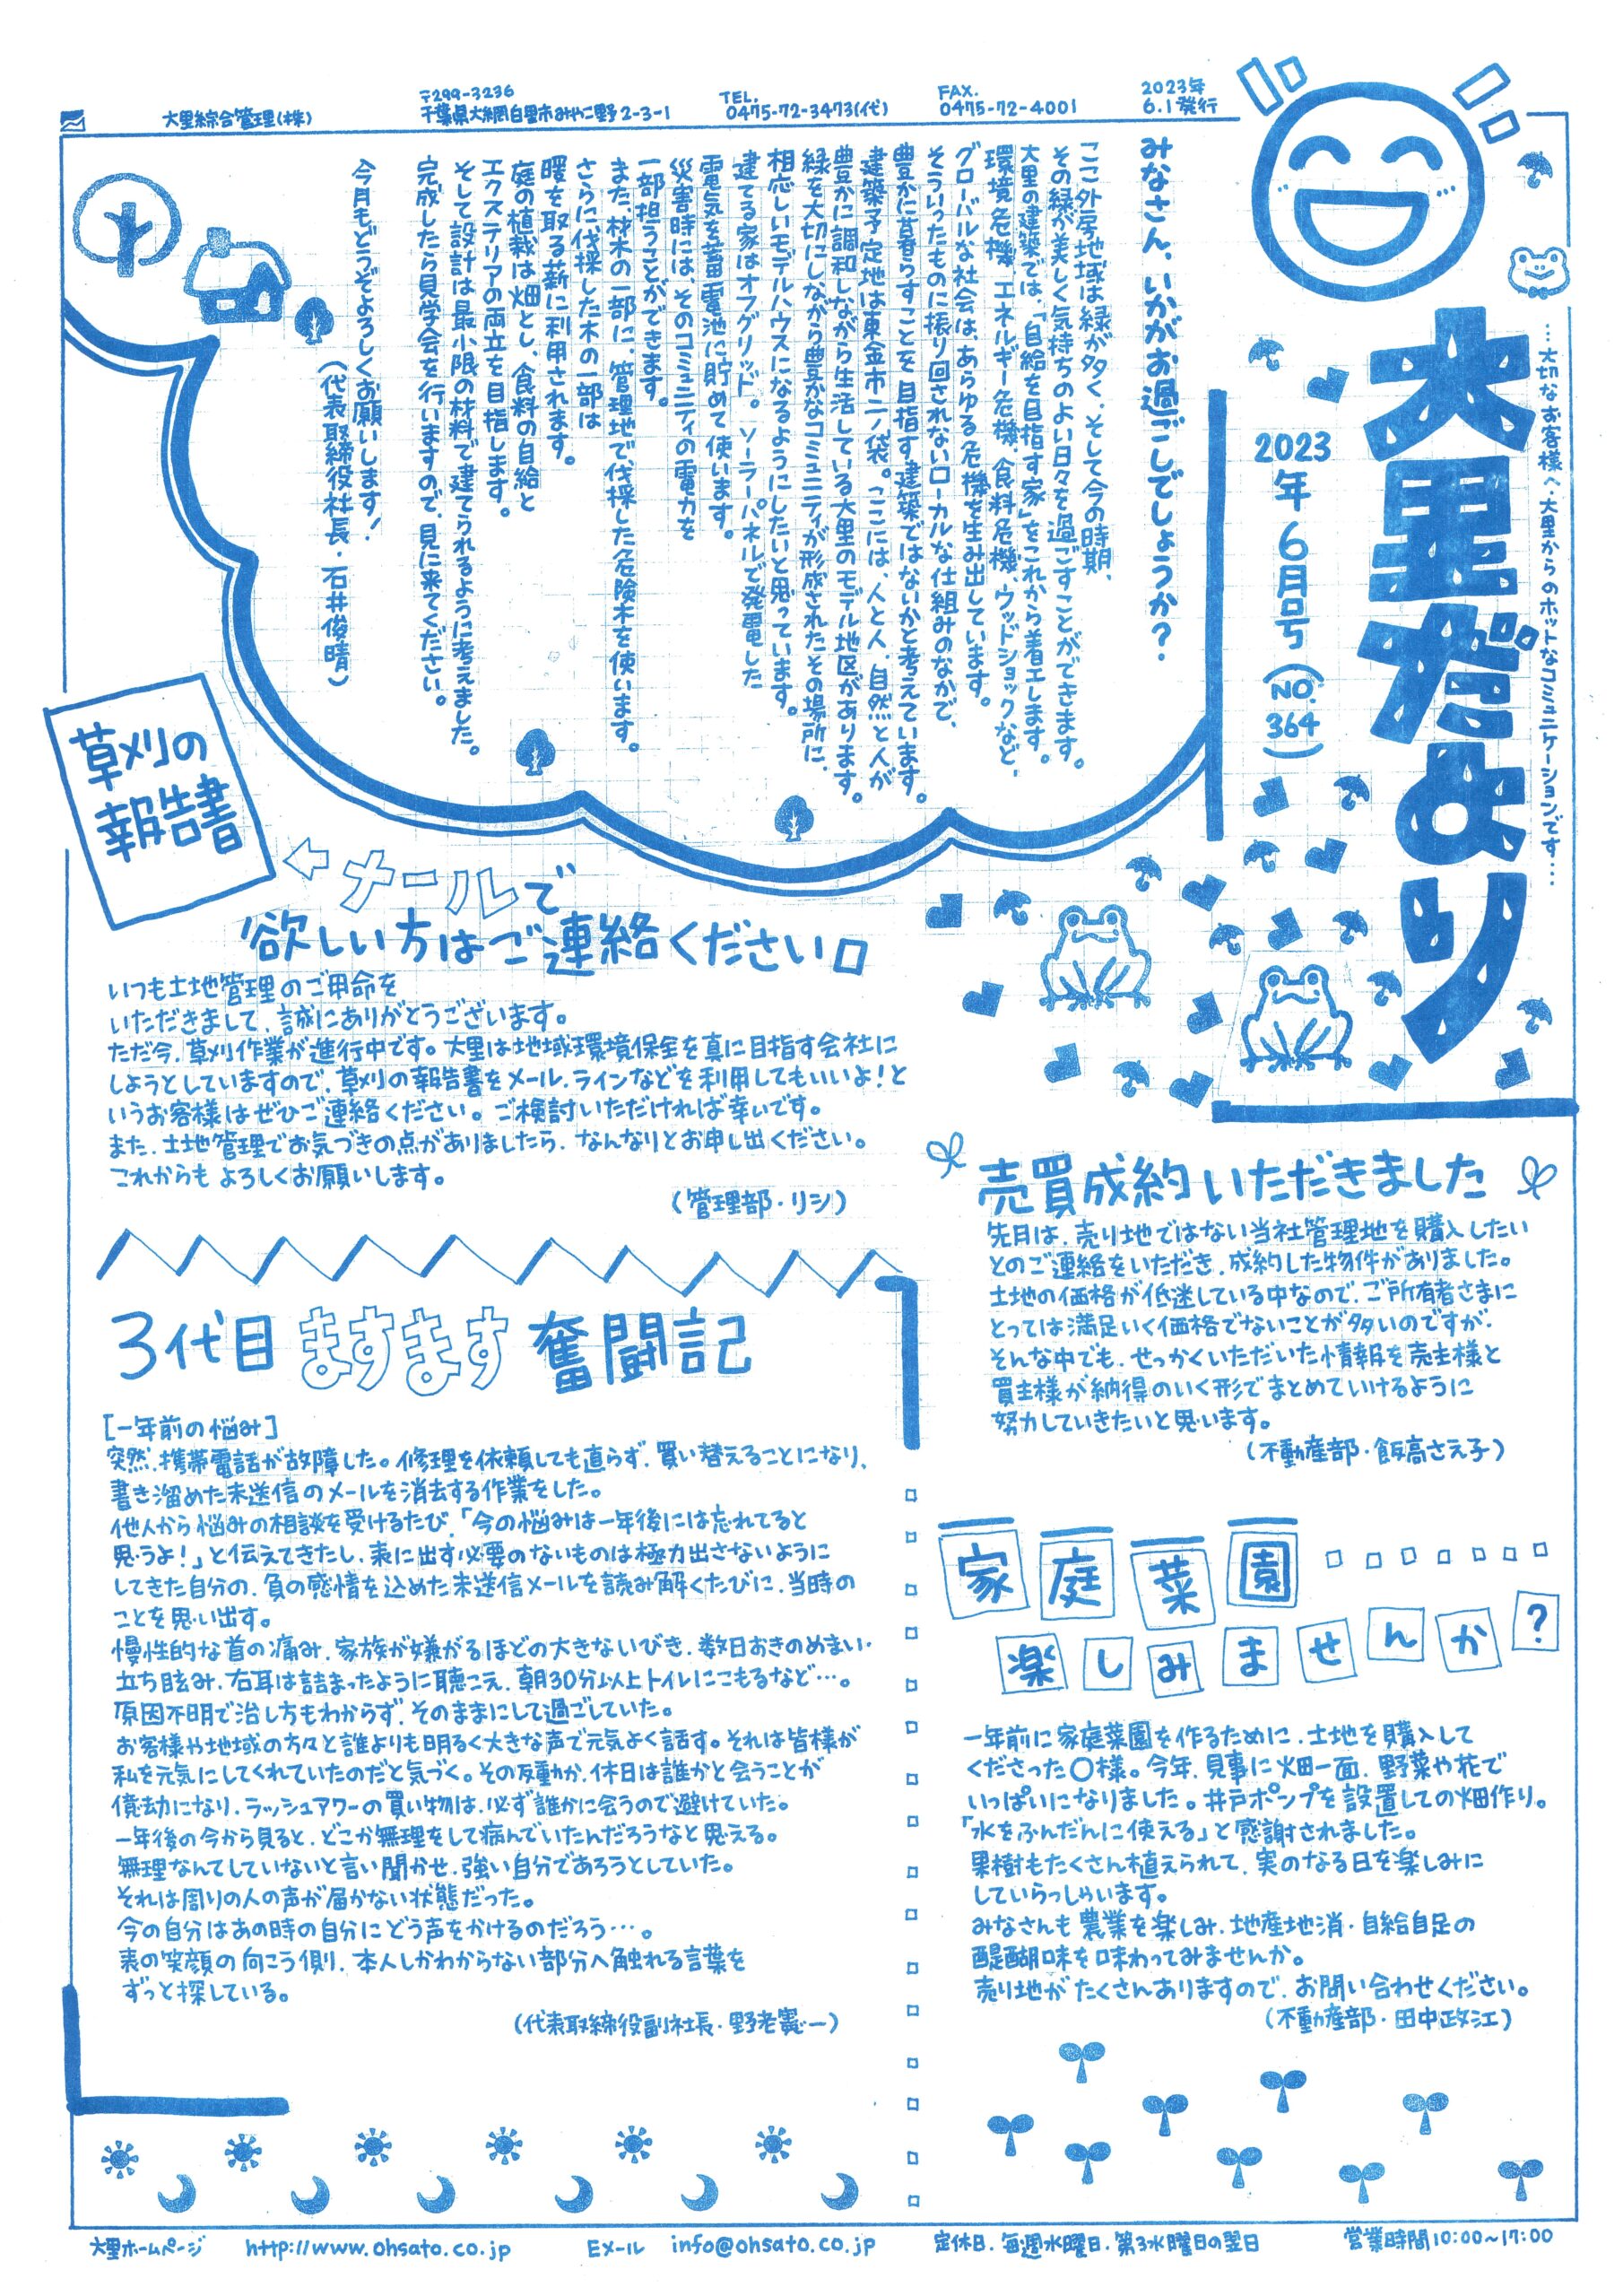 大里綜合管理(株)
〒299-3236
千葉県大網白里市みやこ野2-3-1
TEL.
0475-72-3473(代)
FAX.
0475-72-4001
2023年
6.1発行
…大切なお客様へ大里からのホットなコミュニケーションです…
大里だより
2023
年
6
月
号
(NO.
364)
みなさん、いかがお過ごしでしょうか?
ここ外房地域は緑が多く、そして今の時期、
その緑が美しく気持ちのよい日々を過ごすことができます。
大里の建築では、「自給を目指す家」をこれから着工します。
環境危機、エネルギー危機、食料危機、ウッドショックなど、
グローバルな社会は、あらゆる危機を生み出しています。
そういったものに振り回されないローカルな仕組みのなかで、
豊かに暮らすことを目指す建築ではないかと考えています。
建築予定地は東金市二ノ袋。ここには、人と人、自然と人が
豊かに調和しながら生活している大里のモデル地区があります。
緑を大切にしながら豊かなコミュニティが形成されたその場所に、
相応しいモデルハウスになるようにしたいと思っています。
建てる家はオフグリッド。ソーラーパネルで発電した
電気を蓄電池に貯めて使います。
災害時には、そのコミュニティの電力を
一部担うことができます。
また、材木の一部に、管理地で伐採した危険木を使います。
さらに伐採した木の一部は
暖を取る薪に利用されます。
庭の植栽は畑とし、食料の自給と
エクステリアの両立を目指します。
そして設計は最小限の材料で建てられるように考えました。
完成したら見学会を行いますので、見に来てください。
今月もどうぞよろしくお願いします!
(代表取締役社長・石井俊晴)
草刈の
報告書
←メールで
欲しい方はご連絡ください
いつも土地管理のご用命を
いただきまして、誠にありがとうございます。
ただ今、草刈作業が進行中です。大里は地域環境保全を真に目指す会社に
しようとしていますので、草刈の報告書をメール、ラインなどを利用してもいいよ!と
いうお客様はぜひご連絡ください。ご検討いただければ幸いです。
また、土地管理でお気づきの点がありましたら、なんなりとお申し出ください。
これからもよろしくお願いします。
(管理部・リシ)
3代目ますます奮闘記
[一年前の悩み]
突然、携帯電話が故障した。修理を依頼しても直らず、買い替えることになり、
書き溜めた未送信のメールを消去する作業をした。
他人から悩みの相談を受けるたび、「今の悩みは一年後には忘れてると
思うよ!」と伝えてきたし、表に出す必要のないものは極力出さないように
してきた自分の、負の感情を込めた未送信メールを読み解くたびに、当時の
ことを思い出す。
慢性的な首の痛み、家族が嫌がるほどの大きないびき、数日おきのめまい・
立ち眩み、右耳は詰まったように聴こえ、朝30分以上トイレにこもるなど…。
原因不明で治し方もわからず、そのままにして過ごしていた。
お客様や地域の方々と誰よりも明るく大きな声で元気よく話す。それは皆様が
私を元気にしてくれていたのだと気づく。その反動か、休日は誰かと会うことが
億劫になり、ラッシュアワーの買い物は、必ず誰かに会うので避けていた。
一年後の今から見ると、どこか無理をして病んでいたんだろうなと思える。
無理なんてしていないと言い聞かせ、強い自分であろうとしていた。
それは周りの人の声が届かない状態だった。
今の自分はあの時の自分にどう声をかけるのだろう…。
表の笑顔の向こう側り、本人しかわからない部分へ触れる言葉を
ずっと探している。
(代表取締役副社長・野老憲一)
売買成約いただきました
先月は、売り地ではない当社管理地を購入したい
とのご連絡をいただき、成約した物件がありました。
土地の価格が低迷している中なので、ご所有者さまに
とっては満足いく価格でないことが多いのですが、
そんな中でも、せっかくいただいた情報を売主様と
買主様が納得のいく形でまとめていけるように
努力していきたいと思います。
(不動産部・飯高さえ子)
家庭菜園
楽しみませんか?
一年前に家庭菜園を作るために、土地を購入して
くださった〇様。今年、見事に畑一面、野菜や花で
いっぱいになりました。井戸ポンプを設置しての畑作り。
「水をふんだんに使える」と感謝されました。
果樹もたくさん植えられて、実のなる日を楽しみに
していらっしゃいます。
みなさんも農業を楽しみ、地産地消・自給自足の
醍醐味を味わってみませんか。
売り地がたくさんありますので、お問い合わせください。
(不動産部・田中政江)
大里ホームページ http://www.ohsato.co.jp
Eメール info@ohsato.co.jp
定休日.毎週水曜日.第3水曜日の翌日
営業時間10:00~17:00